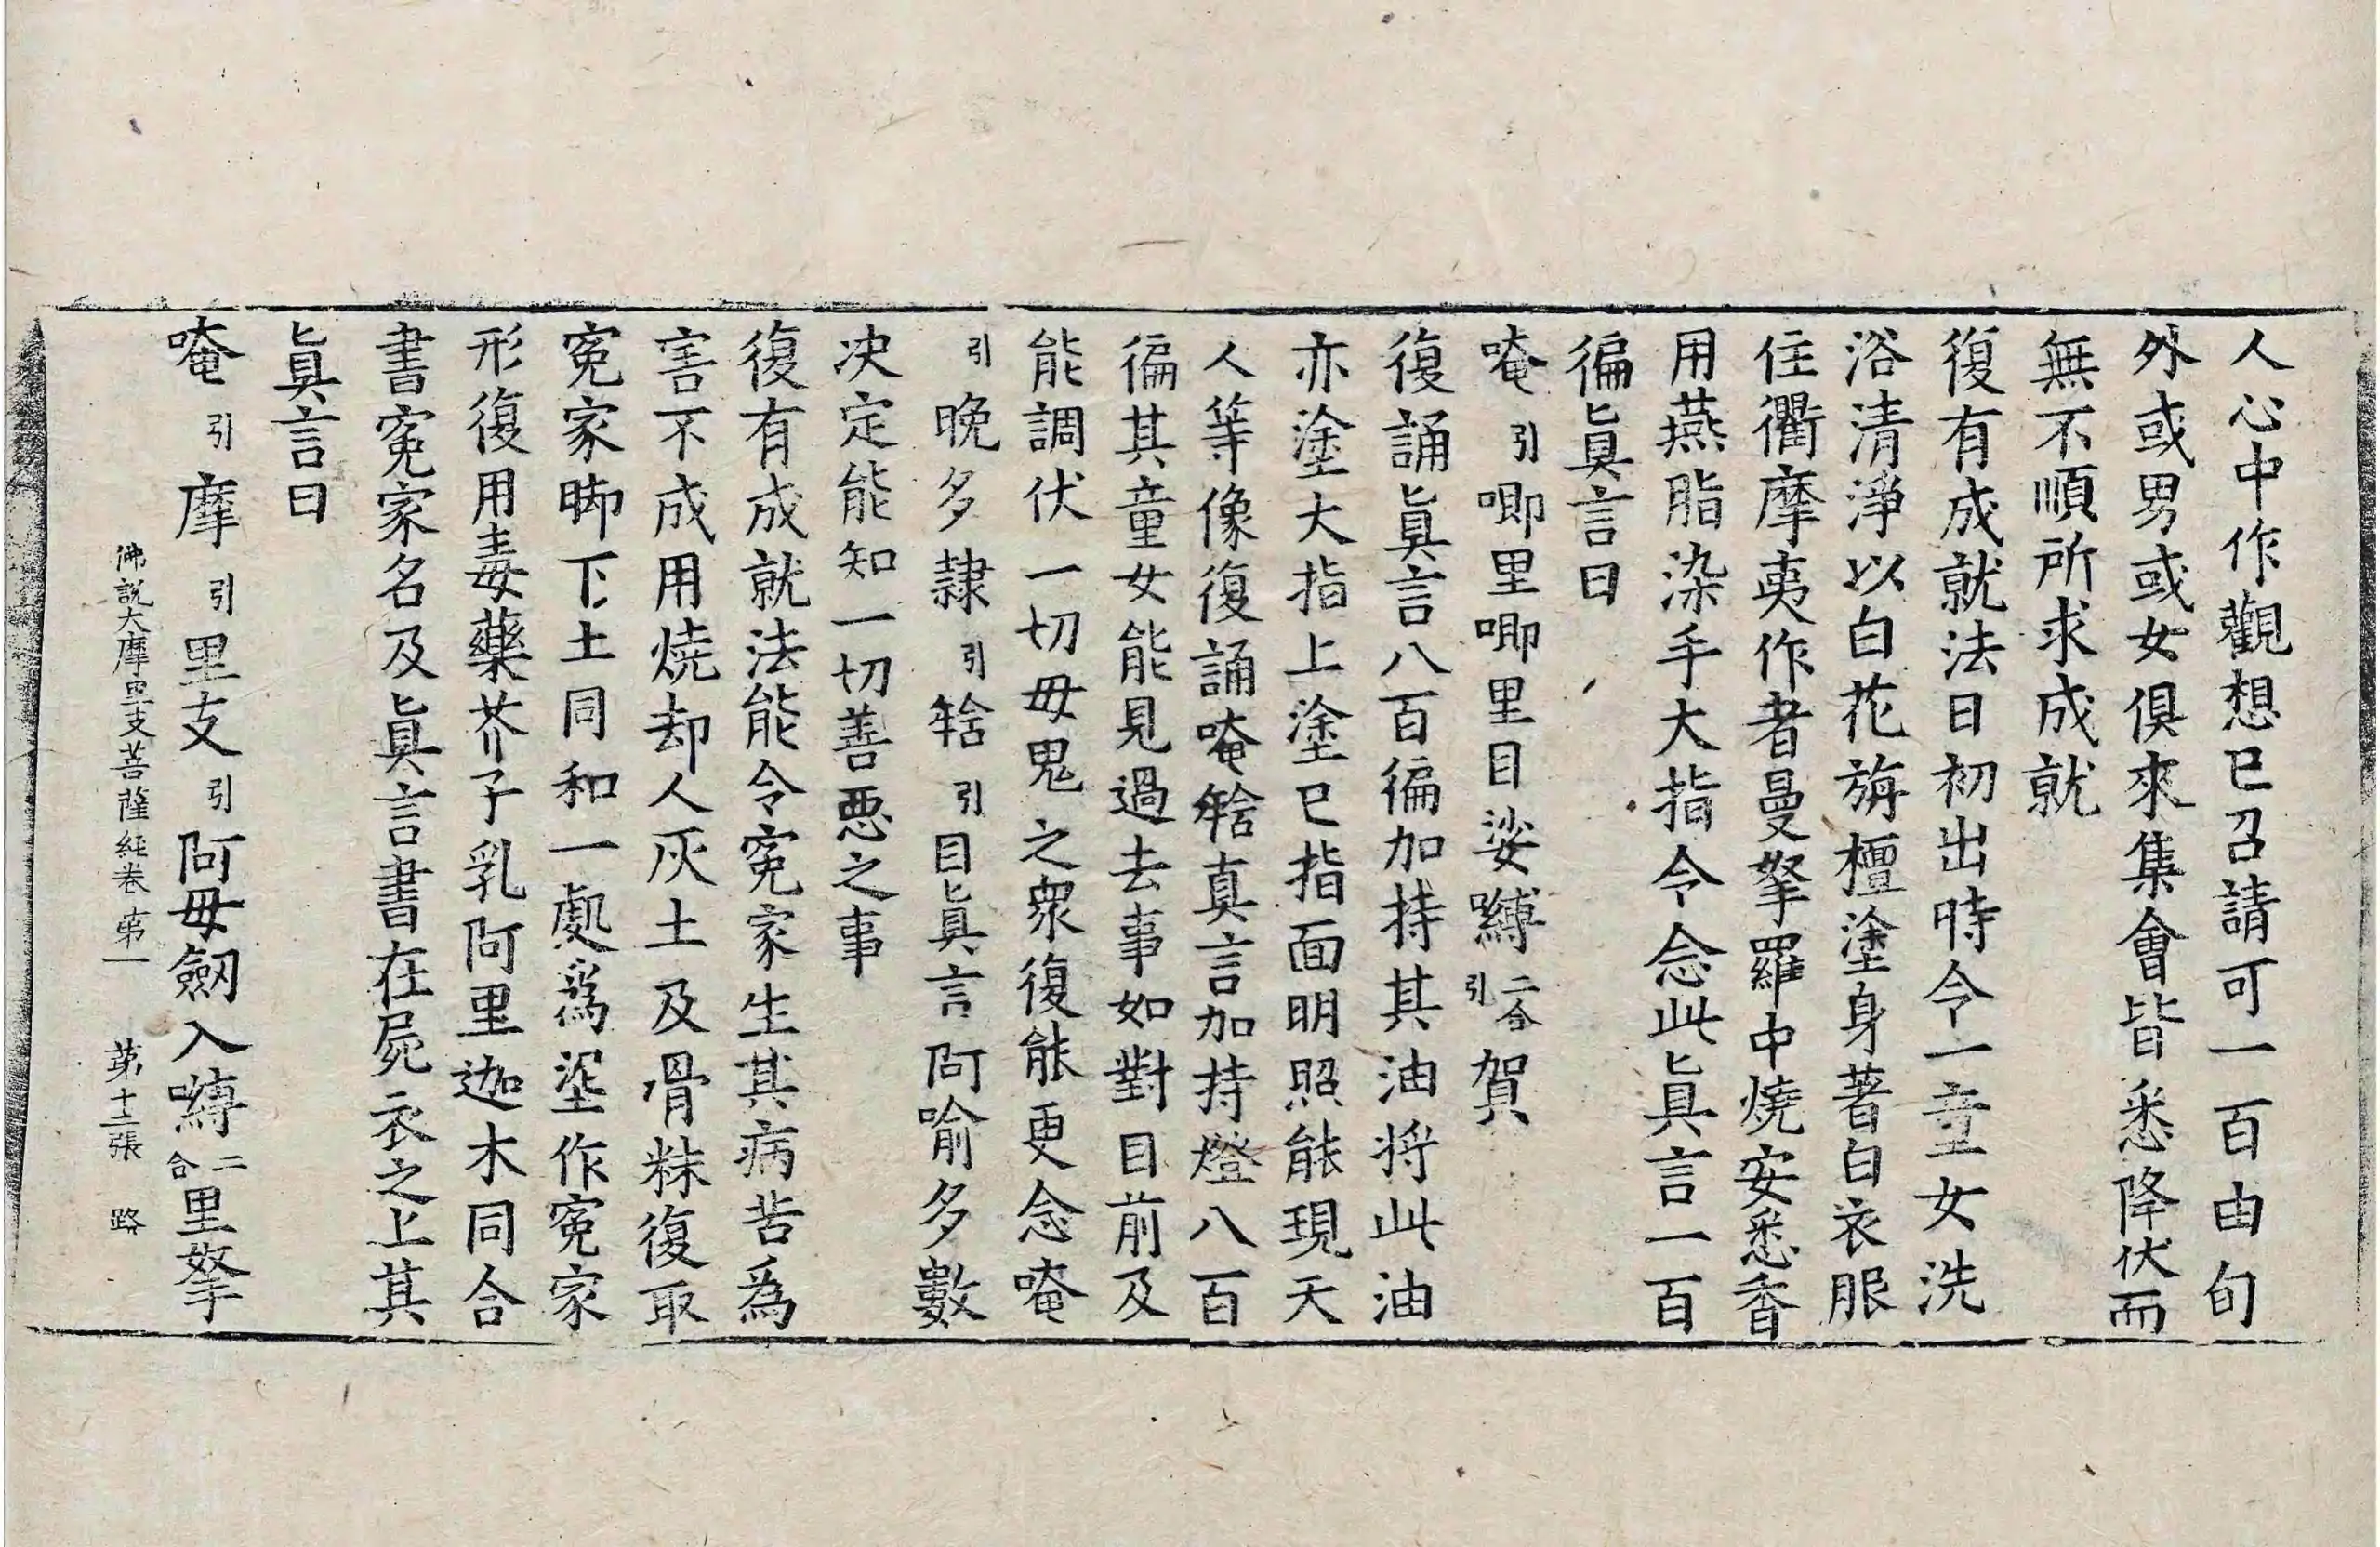 人心中作觀想已召請可一百由旬
外或男或女俱來集會皆悉降伏而
無不順所求成就
復有成就法日初出時令一童女洗
浴清淨以白花旃檀塗身著白衣服
住衢摩夷作者曼拏羅中燒安悉香
用燕脂染手大指令念此眞言一百
徧眞言曰
唵引唧里唧里目娑嚩二合引賀
復誦眞言八百徧加持其油将此油
亦塗大指上塗已指面明照能現天
人等像復誦唵𤚥真言加持燈八百
徧其童女能見過去事如對目前及
能調伏一切毋鬼之衆復能更念唵
引晚多隷引𤚥引目眞言阿喻多數
决定能知一切善惡之事
復有成就法能令寃家生其病苦爲
害不成用燒却人灰土及骨粖復取
寃家脚下土同和一處爲埿作寃家
形復用毒藥芥子乳阿里迦木同合
書寃家名及眞言書在屍衣之上其
眞言曰
唵引摩引里支引阿毋劔入嚩二合里拏
佛說大摩里支菩薩經卷第一 第十二張 路